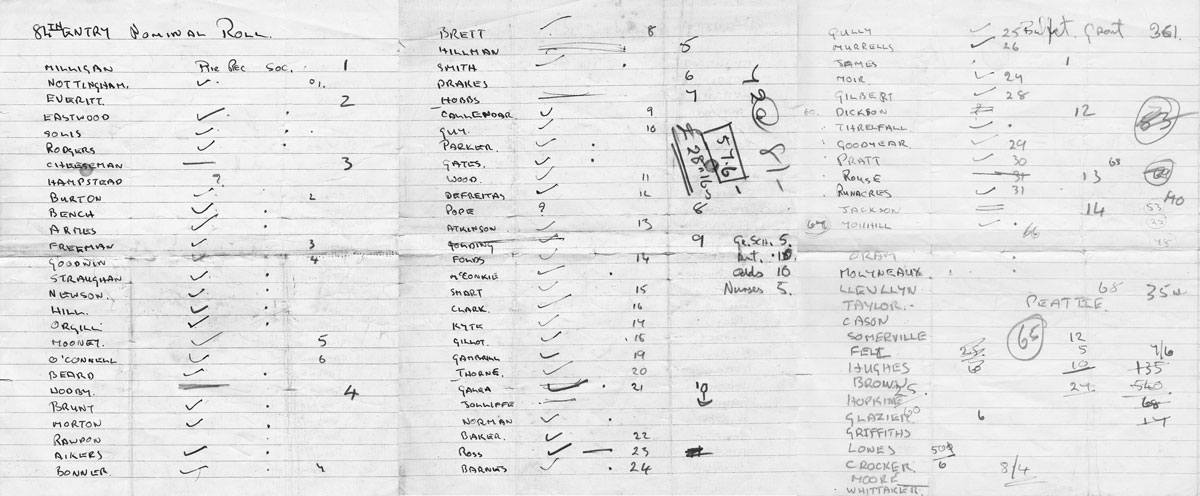 84TH ENTRY NOMINAL ROLL.
MILLIGAN Pre Rec Soc. 1
NOTTINGHAM. ✓ 01.
EVERITT. 2
EASTWOOD ✓ .
SOLIS ✓ .
RODGERS ✓ .
CHEESEMAN — 3
HAMPSTEAD ?
BURTON ✓ 2
BENCH ✓ .
ARMES ✓ .
FREEMAN ✓ 3
GOODWIN ✓ 4
STRAUGHAN ✓ .
NEWSON. ✓ .
HILL. ✓ .
ORGILL. ✓ .
MOONEY. ✓ 5
O'CONNELL ✓ 6
BEARD ✓ .
WOOBY. 4
BRUNT ✓ .
MORTON ✓ .
RAWDON
AIKERS ✓ .
BONNER ✓ .
BRETT ✓ 8
HILLMAN 5
SMITH ✓ .
DRAKES 6
HOBBS — 7
CALLENDAR ✓ 9
GUY. ✓ 10
PARKER. ✓ .
GATES. ✓ .
WOOD. ✓ 11
DEFREITAS ✓ 12
POPE ? 8
ATKINSON ✓ 13
GOLDING 9
FOLDS ✓ 14
McCONKIE ✓ .
SMART ✓ 15
CLARK. ✓ 16
KYTE ✓ 17
GILLOT. ✓ 18
GAMBRILL ✓ 19
THORNE. ✓ 20
GALEA ✓ 21
JOLLIFFE
NORMAN ✓ .
BAKER. ✓ 22
ROSS ✓ — 23
BARNES ✓ 24
57.6
£28 16s
Gr. Sch. 5.
Ant. 10
odds 10
Nurses 5.
GULLY ✓ 25 Buffet. Grant 361.
MURRELLS ✓ 26
JAMES ✓ 1
MOIR ✓ 27
GILBERT ✓ 28
DICKSON 12
THRELFALL ✓ .
GOODYEAR ✓ 29
PRATT ✓ 30 63
ROUSE 31 13
RUNACRES ✓ 31
JACKSON 14 53
64 ✓ .
66
ORAM .
MOLYNEAUX. .
LLEWLLYN 68 35
TAYLOR.
CASON
SOMERVILLE 65 12
FELL 25 5 7/6
HUGHES 6 10 135
BROWN 27 540
HOPKINS 68
GLAZIER 60 6 14
GRIFFITHS
LONES
CROCKER. 6 8/4
MOORE
WHITTAKER.